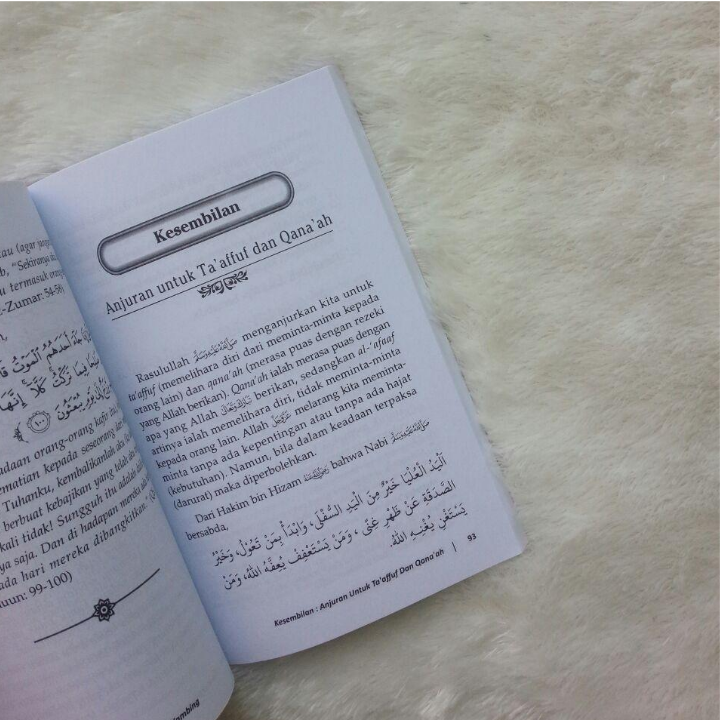 (agar jangan
“Sekiranya
termasuk orang
-Zumar: 54-58)
أَحَدَهُمُ الْمَوْتُ
فِيمَا تَرَكْتُ كَلَّا إِنَّهَا
إِلَىٰ يَوْمِ يُبْعَثُونَ ١٠٠
orang-orang kafir
kepada seseorang
Tuhanku, kembalikanlah
berbuat kebajikan yang telah
kali tidak! Sungguh itu adalah
saja. Dan di hadapan mereka
hari mereka dibangkitkan.”
99-100)
Kesembilan
Anjuran untuk Ta'affuf dan Qana'ah
Rasulullah ﷺ menganjurkan kita untuk
ta'affuf (memelihara diri dari meminta-minta kepada
orang lain) dan qana'ah (merasa puas dengan rezeki
yang Allah berikan). Qana'ah ialah merasa puas dengan
apa yang Allah berikan, sedangkan al-'afaaf
artinya ialah memelihara diri, tidak meminta-minta
kepada orang lain. Allah melarang kita meminta-
minta tanpa ada kepentingan atau tanpa ada hajat
(kebutuhan). Namun, bila dalam keadaan terpaksa
(darurat) maka diperbolehkan.
Dari Hakim bin Hizam bahwa Nabi ﷺ
bersabda,
اَلْيَدُ الْعُلْيَا خَيْرٌ مِنَ الْيَدِ السُّفْلَى، وَابْدَأْ بِمَنْ تَعُوْلُ، وَخَيْرُ
الصَّدَقَةِ عَنْ ظَهْرِ غِنًى، وَمَنْ يَسْتَعْفِفْ يُعِفَّهُ اللهُ، وَمَنْ
يَسْتَغْنِ يُغْنِهِ اللهُ.
Kesembilan : Anjuran Untuk Ta'affuf Dan Qana'ah | 93